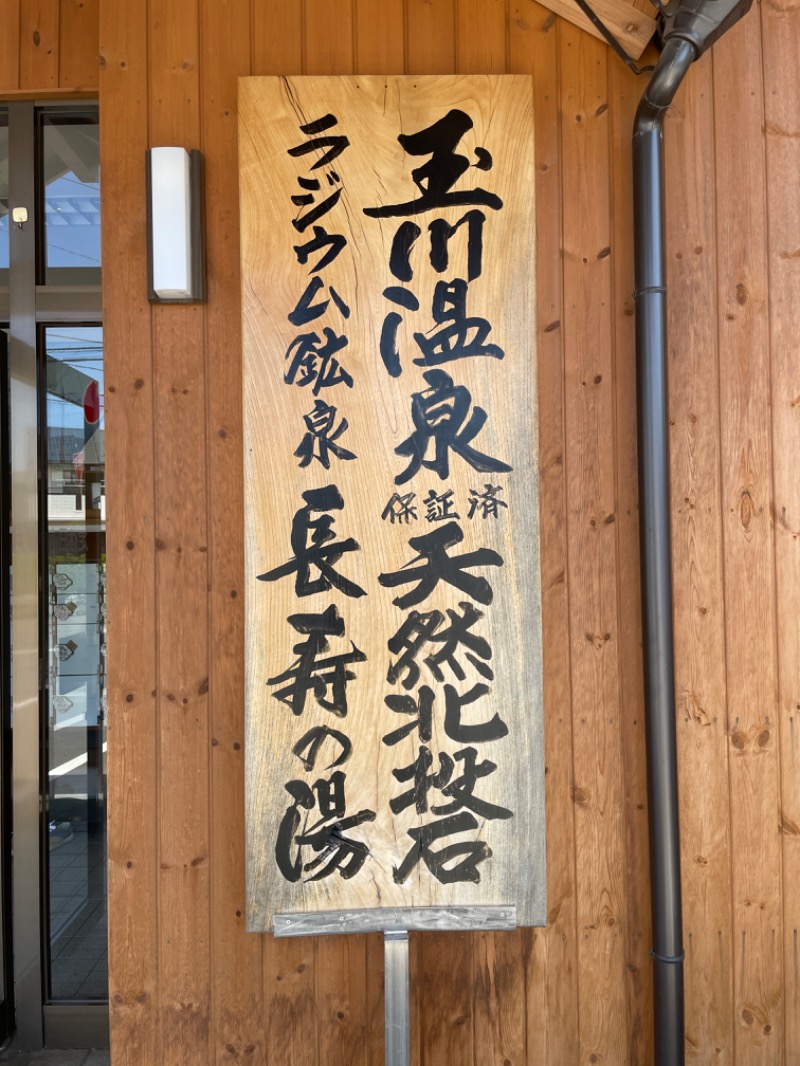 玉川温泉保証済天然北投石
ラジウム鉱泉長寿の湯